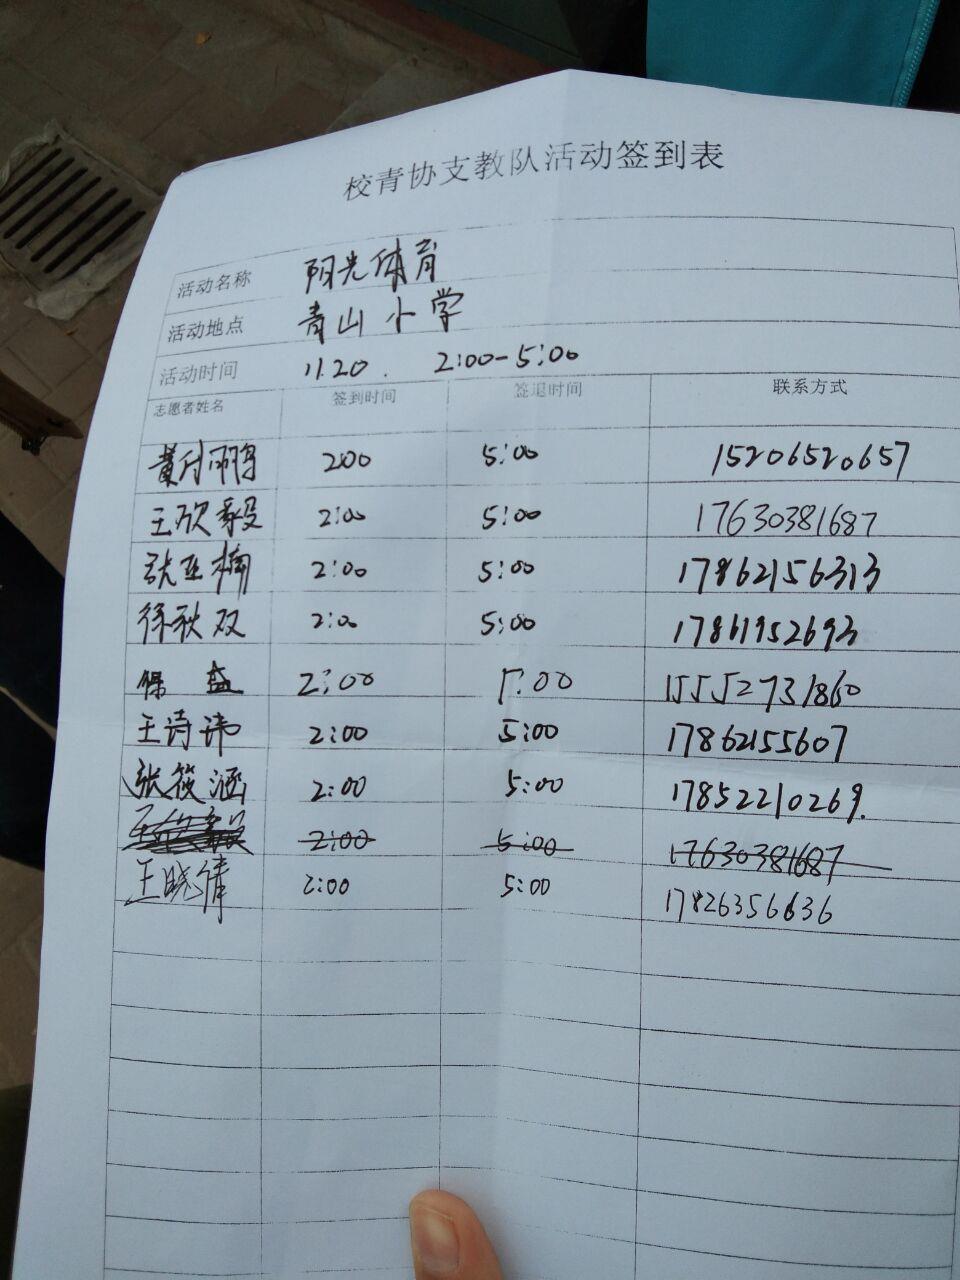 校青协支教队活动签到表
活动名称 阳光体育
活动地点 青山小学
活动时间 11.20. 2:00-5:00
志愿者姓名 签到时间 签退时间 联系方式
200 5:00 15206520657
王欣毅 2:00 5:00 17630381687
张亚楠 2:00 5:00 17862156313
徐秋双 2:00 5:00 17861952693
保益 2:00 5:00 15552731860
王诗沛 2:00 5:00 17862155607
张筱涵 2:00 5:00 17852210269.
2:00 5:00 17630381687
王晓倩 2:00 5:00 17826356636